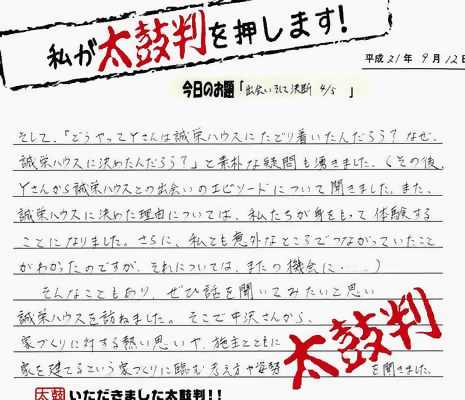 私が太鼓判を押します!
平成21年 9月12日
今日のお題「出会いそして決断 4/5 」
そして、「どうやってYさんは誠栄ハウスにたどり着いたんだろう？なぜ、
誠栄ハウスに決めたんだろう？」と素朴な疑問も湧きました。(その後、
Yさんから誠栄ハウスとの出会いのエピソードについて聞きました。また、
誠栄ハウスに決めた理由については、私たちが身をもって体験する
ことになりました。さらに、私とも意外なところでつながっていたこと
がわかったのですが、それについては、またの機会に・・・・)
そんなこともあり、ぜひ話を聞いてみたいと思い
誠栄ハウスを訪ねました。そこで中沢さんから、
家づくりに対する熱い思いや、施主とともに
家を建てるという家づくりに臨む考え方や姿勢 を聞きました。
太鼓判
太鼓 いただきました太鼓判!!